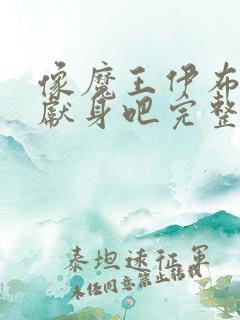 像魔王伊布
献身吧完整
泰坦远征军
未经同意禁止转载